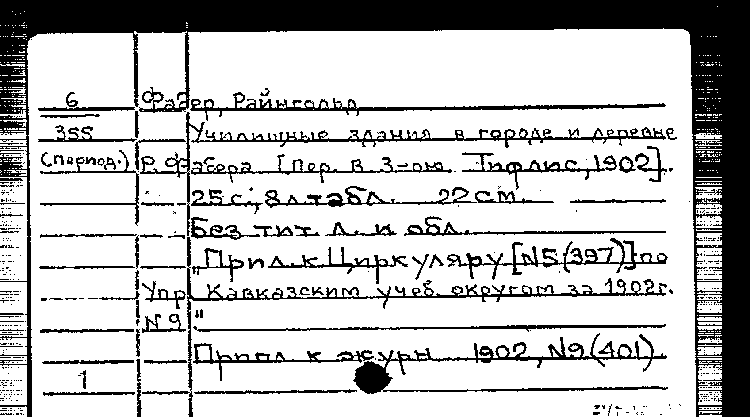 6 Фабер, Райнгольд
355 Училищные здания в городе и деревне
(период.) Р. Фабера [Пер. В. З-ою. Тифлис, 1902].
25 с.; 8 л табл. 22 см.
Без тит. л. и обл.
"Прил. к Циркуляру [N5(397)] по
Упр. Кавказским учеб. округом за 1902г.
N 9."
Прил к журн 1902, N9(401).
1